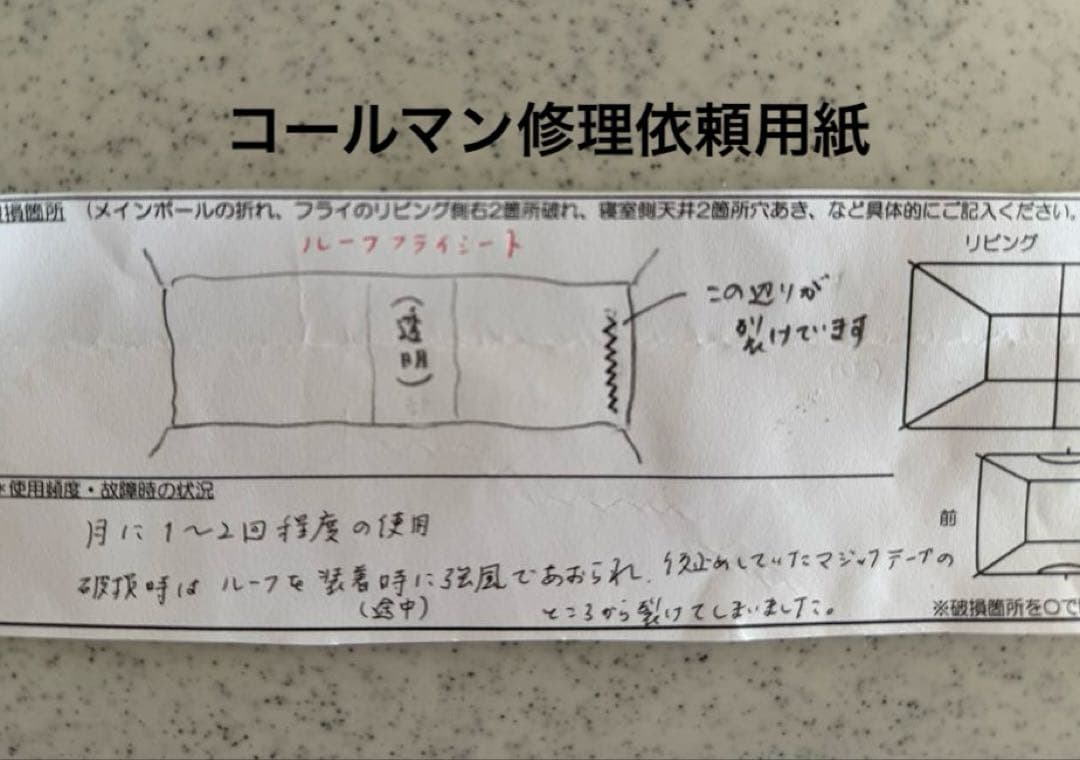 コールマン修理依頼用紙
損箇所 (メインポールの折れ、フライのリビング側右2箇所破れ、寝室側天井2箇所穴あき、など具体的にご記入ください。
ルーフフライシート
リビング
(透明)
この辺りが
裂けています
*使用頻度・故障時の状況
月に1〜2回程度の使用
前
破損時はルーフを装着時に強風であおられ、仮止めしていたマジックテープの
(途中)
ところから裂けてしまいました。
※破損箇所を○で